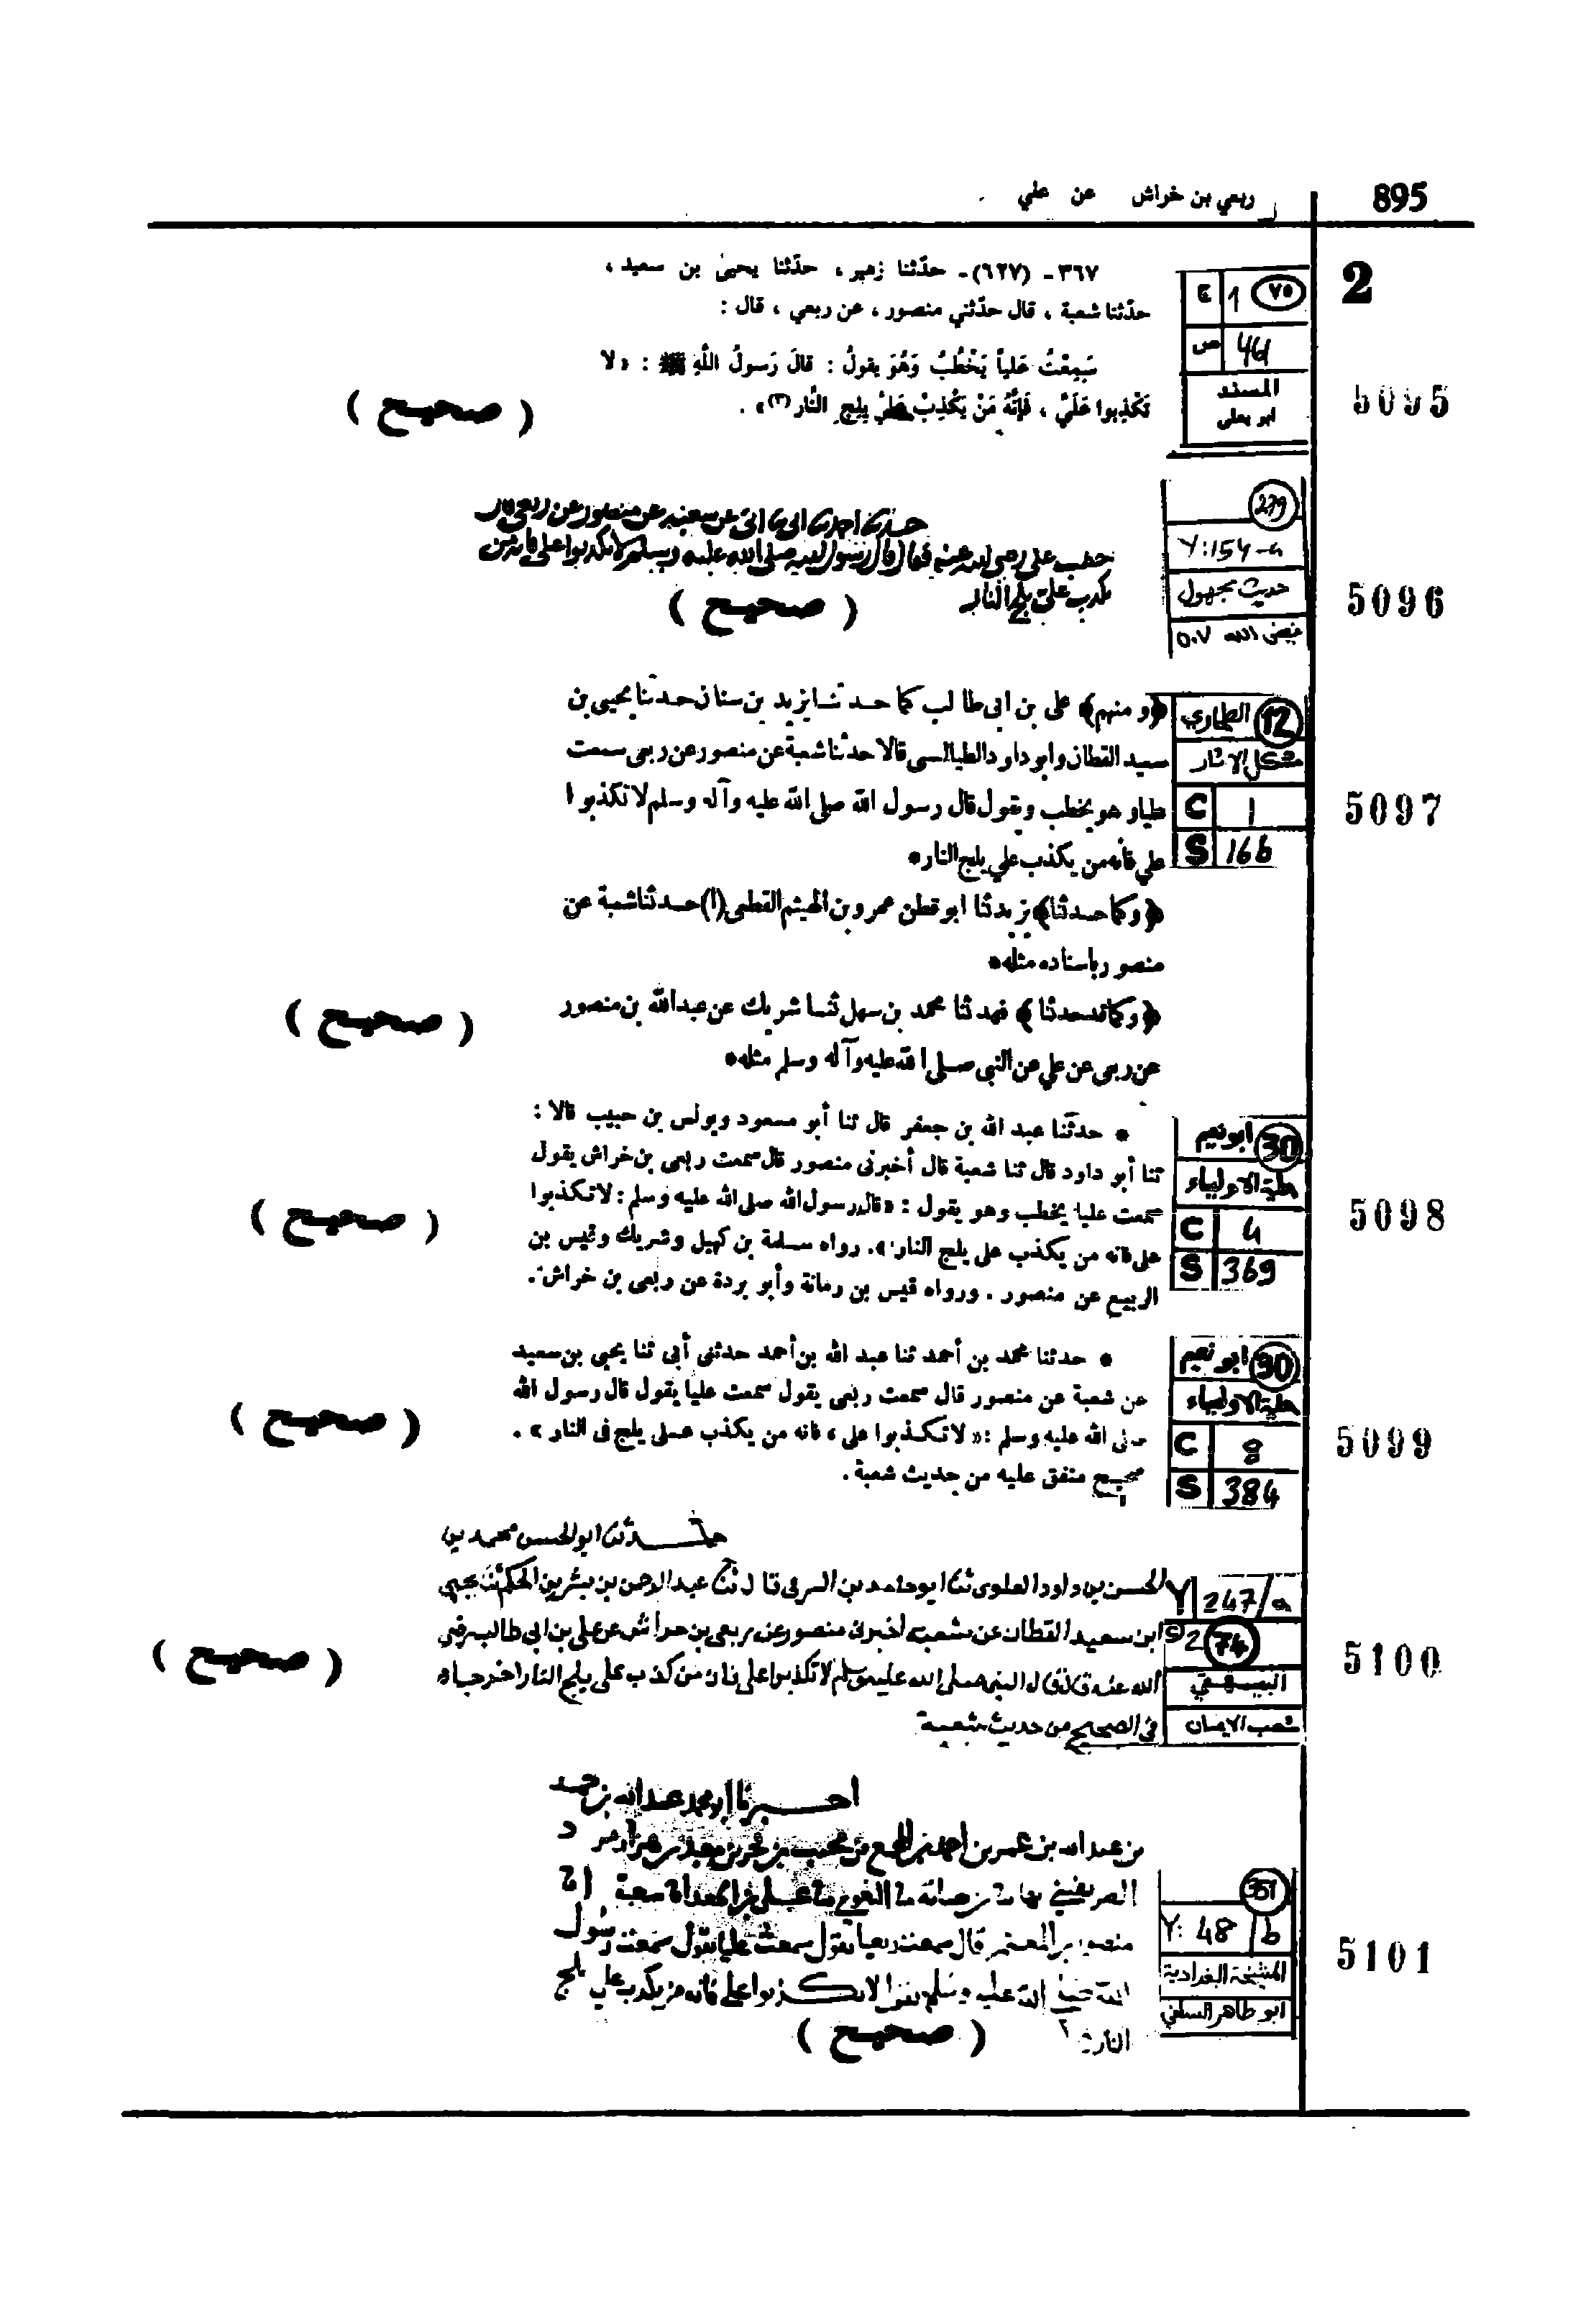 895
ربعي بن خراش عن علي
2
٣٦٧ - (٦٢٧) - حدّثنا زهير ، حدّثنا يحيىٰ بن سعيد ،
حدّثنا شعبة ، قال حدّثني منصور ، عن ربعي ، قال :
سَمِعْتُ عَلياً يَخْطُبُ وَهُوَ يقولُ : قالَ رَسولُ اللَّهِ ﷺ : «لا
تَكْذِبوا عَلَيَّ ، فَإِنَّهُ مَنْ يَكْذِبْ عَلَيَّ يلِجِ النَّار (٣)» .
( صحيح )
٧٥ 1 ج
461 ص
المسند
ابو يعلى
5095
عن سعيد عن منصور عن ربعي قال
خطب علي رضي الله عنه فقال قال رسول الله صلى الله عليه وسلم لا تكذبوا على فانه من
يكذب على يلج النار
( صحيح )
279
Y: 154-a
حديث مجهول
فيض الله ٥٠٧
5096
﴿و منهم﴾ على بن ابى طالب كما حدثنا يزيد بن سنان حدثنا يحيى بن
سعيد القطان وابو داود الطيالسى قالا حدثنا شعبة عن منصور عن ربعى سمعت
عليا وهو يخطب ويقول قال رسول الله صلى الله عليه وآله وسلم لا تكذبوا
علي فأنه من يكذب علي يلج النار*
﴿وكما حدثنا﴾ يزيد ثنا ابو قطن عمرو بن الهيثم القطعى (١) حدثنا شعبة عن
منصور باسناده مثله*
﴿وكما قد حدثنا﴾ فهد ثنا محمد بن سهل ثنا شريك عن عبد الله بن منصور
عن ربعى عن علي عن النبى صلى الله عليه وآله وسلم مثله*
( صحيح )
12 الطحاوي
مشكل الاثار
C 1
S 166
5097
* حدثنا عبد الله بن جعفر قال ثنا أبو مسعود ويونس بن حبيب قالا :
ثنا أبو داود قال ثنا شعبة قال أخبرنى منصور قال سمعت ربعى بن خراش يقول
سمعت عليا يخطب وهو يقول : «قال رسول الله صلى الله عليه وسلم : لا تكذبوا
على فانه من يكذب على يلج النار» . رواه سلمة بن كهيل وشريك وقيس بن
الربيع عن منصور . ورواه قيس بن رمانة وأبو بردة عن ربعى بن خراش .
( صحيح )
30 ابو نعيم
حلية الاولياء
C 4
S 369
5098
* حدثنا محمد بن أحمد ثنا عبد الله بن أحمد حدثنى أبى ثنا يحيى بن سعيد
عن شعبة عن منصور قال سمعت ربعى يقول سمعت عليا يقول قال رسول الله
صلى الله عليه وسلم : «لا تكذبوا على ، فانه من يكذب على يلج فى النار» .
صحيح متفق عليه من حديث شعبة .
( صحيح )
30 ابو نعيم
حلية الاولياء
C 8
S 384
5099
حدثنا ابو الحسن محمد بن
الحسن بن داود العلوى ثنا ابو حامد بن الشرقى قال ثنا عبد الرحمن بن بشر بن الحكم ثنا يحيى
ابن سعيد القطان عن شعبة اخبرنى منصور عن ربعى بن حراش عن على بن ابى طالب رضي
الله عنه قال قال النبى صلى الله عليه وسلم لا تكذبوا على فان من كذب على يلج النار اخرجاه
فى الصحيح من حديث شعبة
( صحيح )
Y 247/a
2 74
البيهقي
شعب الايمان
5100
اخبرنا ابو محمد عبد الله بن
بن عبد الله بن عمر بن احمد
الصريفيني
منصور بن المعتمر قال سمعت ربعيا يقول سمعت عليا يقول سمعت رسول
الله صلى الله عليه وسلم يقول لا تكذبوا على فانه من يكذب علي يلج
النار
( صحيح )
351
Y: 48/b
المشيخة البغدادية
ابو طاهر السلفي
5101